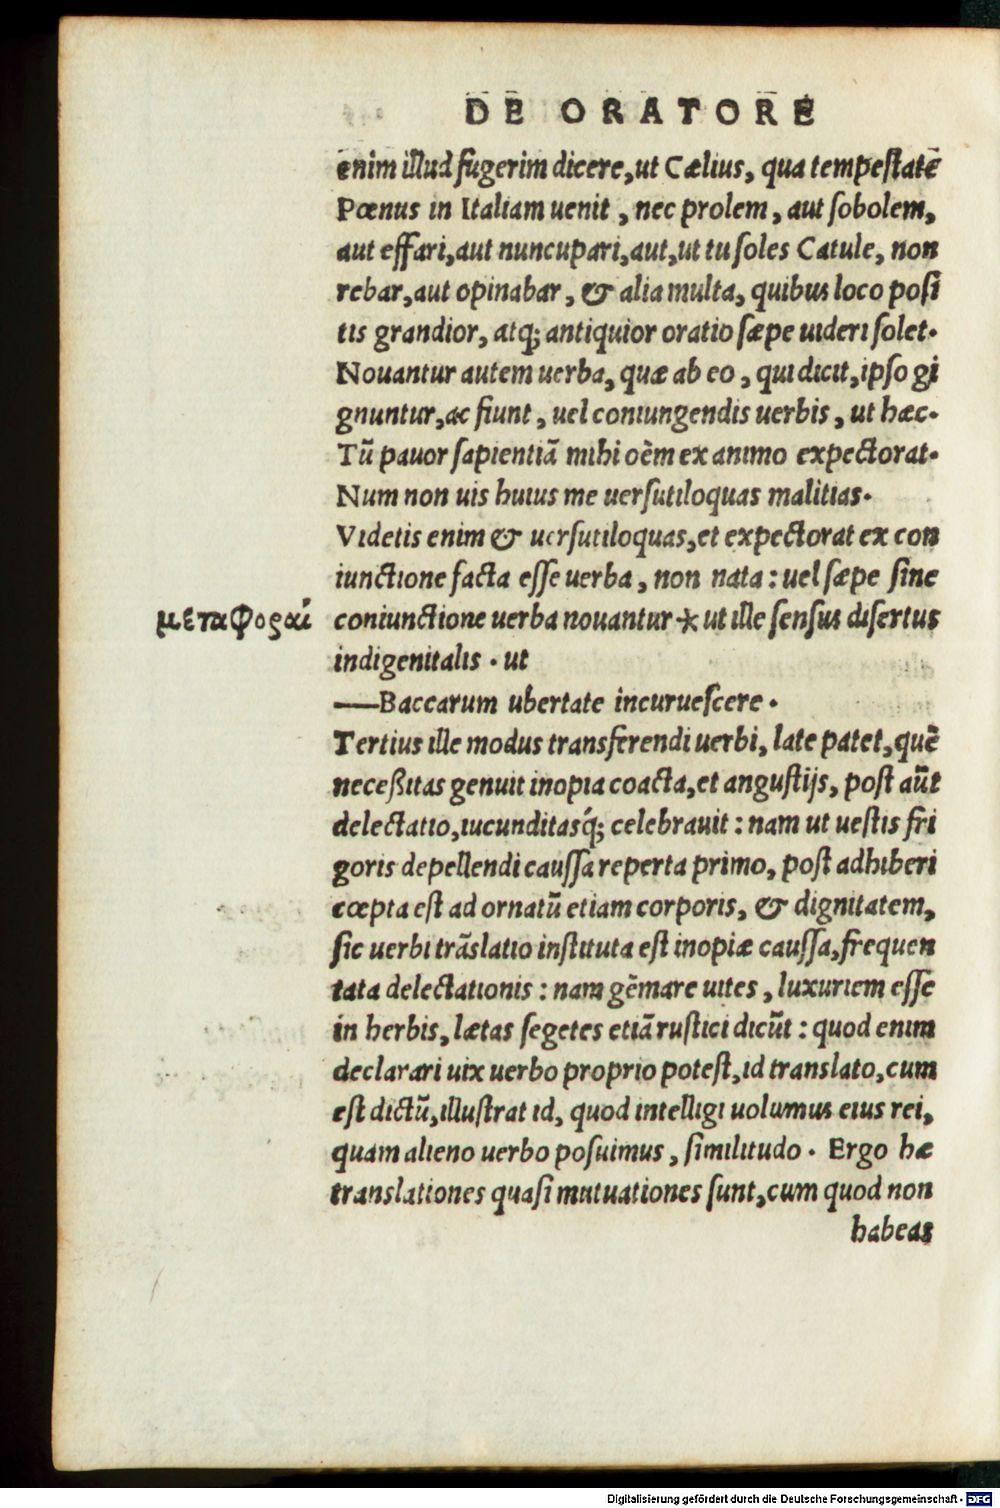 DE ORATORE
enim illud fugerim dicere, ut Cælius, qua tempestatē
Pœnus in Italiam uenit, nec prolem, aut sobolem,
aut effari, aut nuncupari, aut, ut tu soles Catule, non
rebar, aut opinabar, & alia multa, quibus loco posi
tis grandior, atq; antiquior oratio sæpe uideri solet.
Nouantur autem uerba, quæ ab eo, qui dicit, ipso gi
gnuntur, ac fiunt, uel coniungendis uerbis, ut hæc.
Tū pauor sapientiā mihi oēm ex animo expectorat.
Num non uis huius me uersutiloquas malitias.
Videtis enim & uersutiloquas, et expectorat ex con
iunctione facta esse uerba, non nata: uel sæpe sine
μεταφοραί
coniunctione uerba nouantur * ut ille sensus disertus
indigenitalis. ut
—Baccarum ubertate incuruescere.
Tertius ille modus transferendi uerbi, late patet, quē
necessitas genuit inopia coacta, et angustijs, post aūt
delectatio, iucunditasq́; celebrauit: nam ut uestis fri
goris depellendi caussa reperta primo, post adhiberi
cœpta est ad ornatū etiam corporis, & dignitatem,
sic uerbi trāslatio instituta est inopiæ caussa, frequen
tata delectationis: nam gēmare uites, luxuriem esse
in herbis, lætas segetes etiā rustici dicūt: quod enim
declarari uix uerbo proprio potest, id translato, cum
est dictū, illustrat id, quod intelligi uolumus eius rei,
quam alieno uerbo posuimus, similitudo. Ergo hæ
translationes quasi mutuationes sunt, cum quod non
habeas
Digitalisierung gefördert durch die Deutsche Forschungsgemeinschaft - DFG